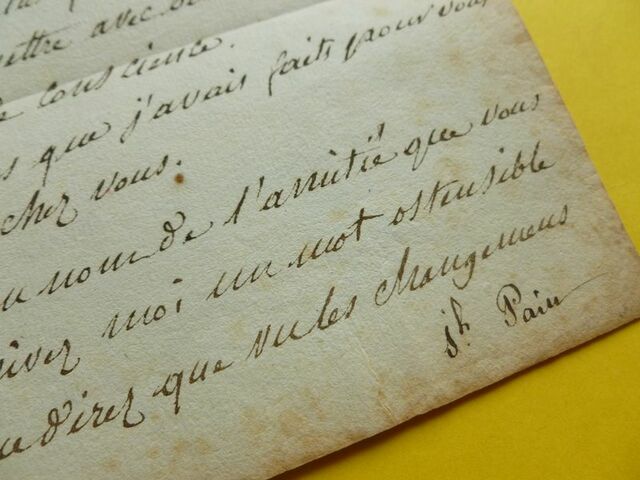 ettre avec
conscience.
s que j'avais faits pour vous
chez vous.
u nom de l'amitié que vous
rivez moi un mot ostensible
direz que vu les changemens
jh. Pain